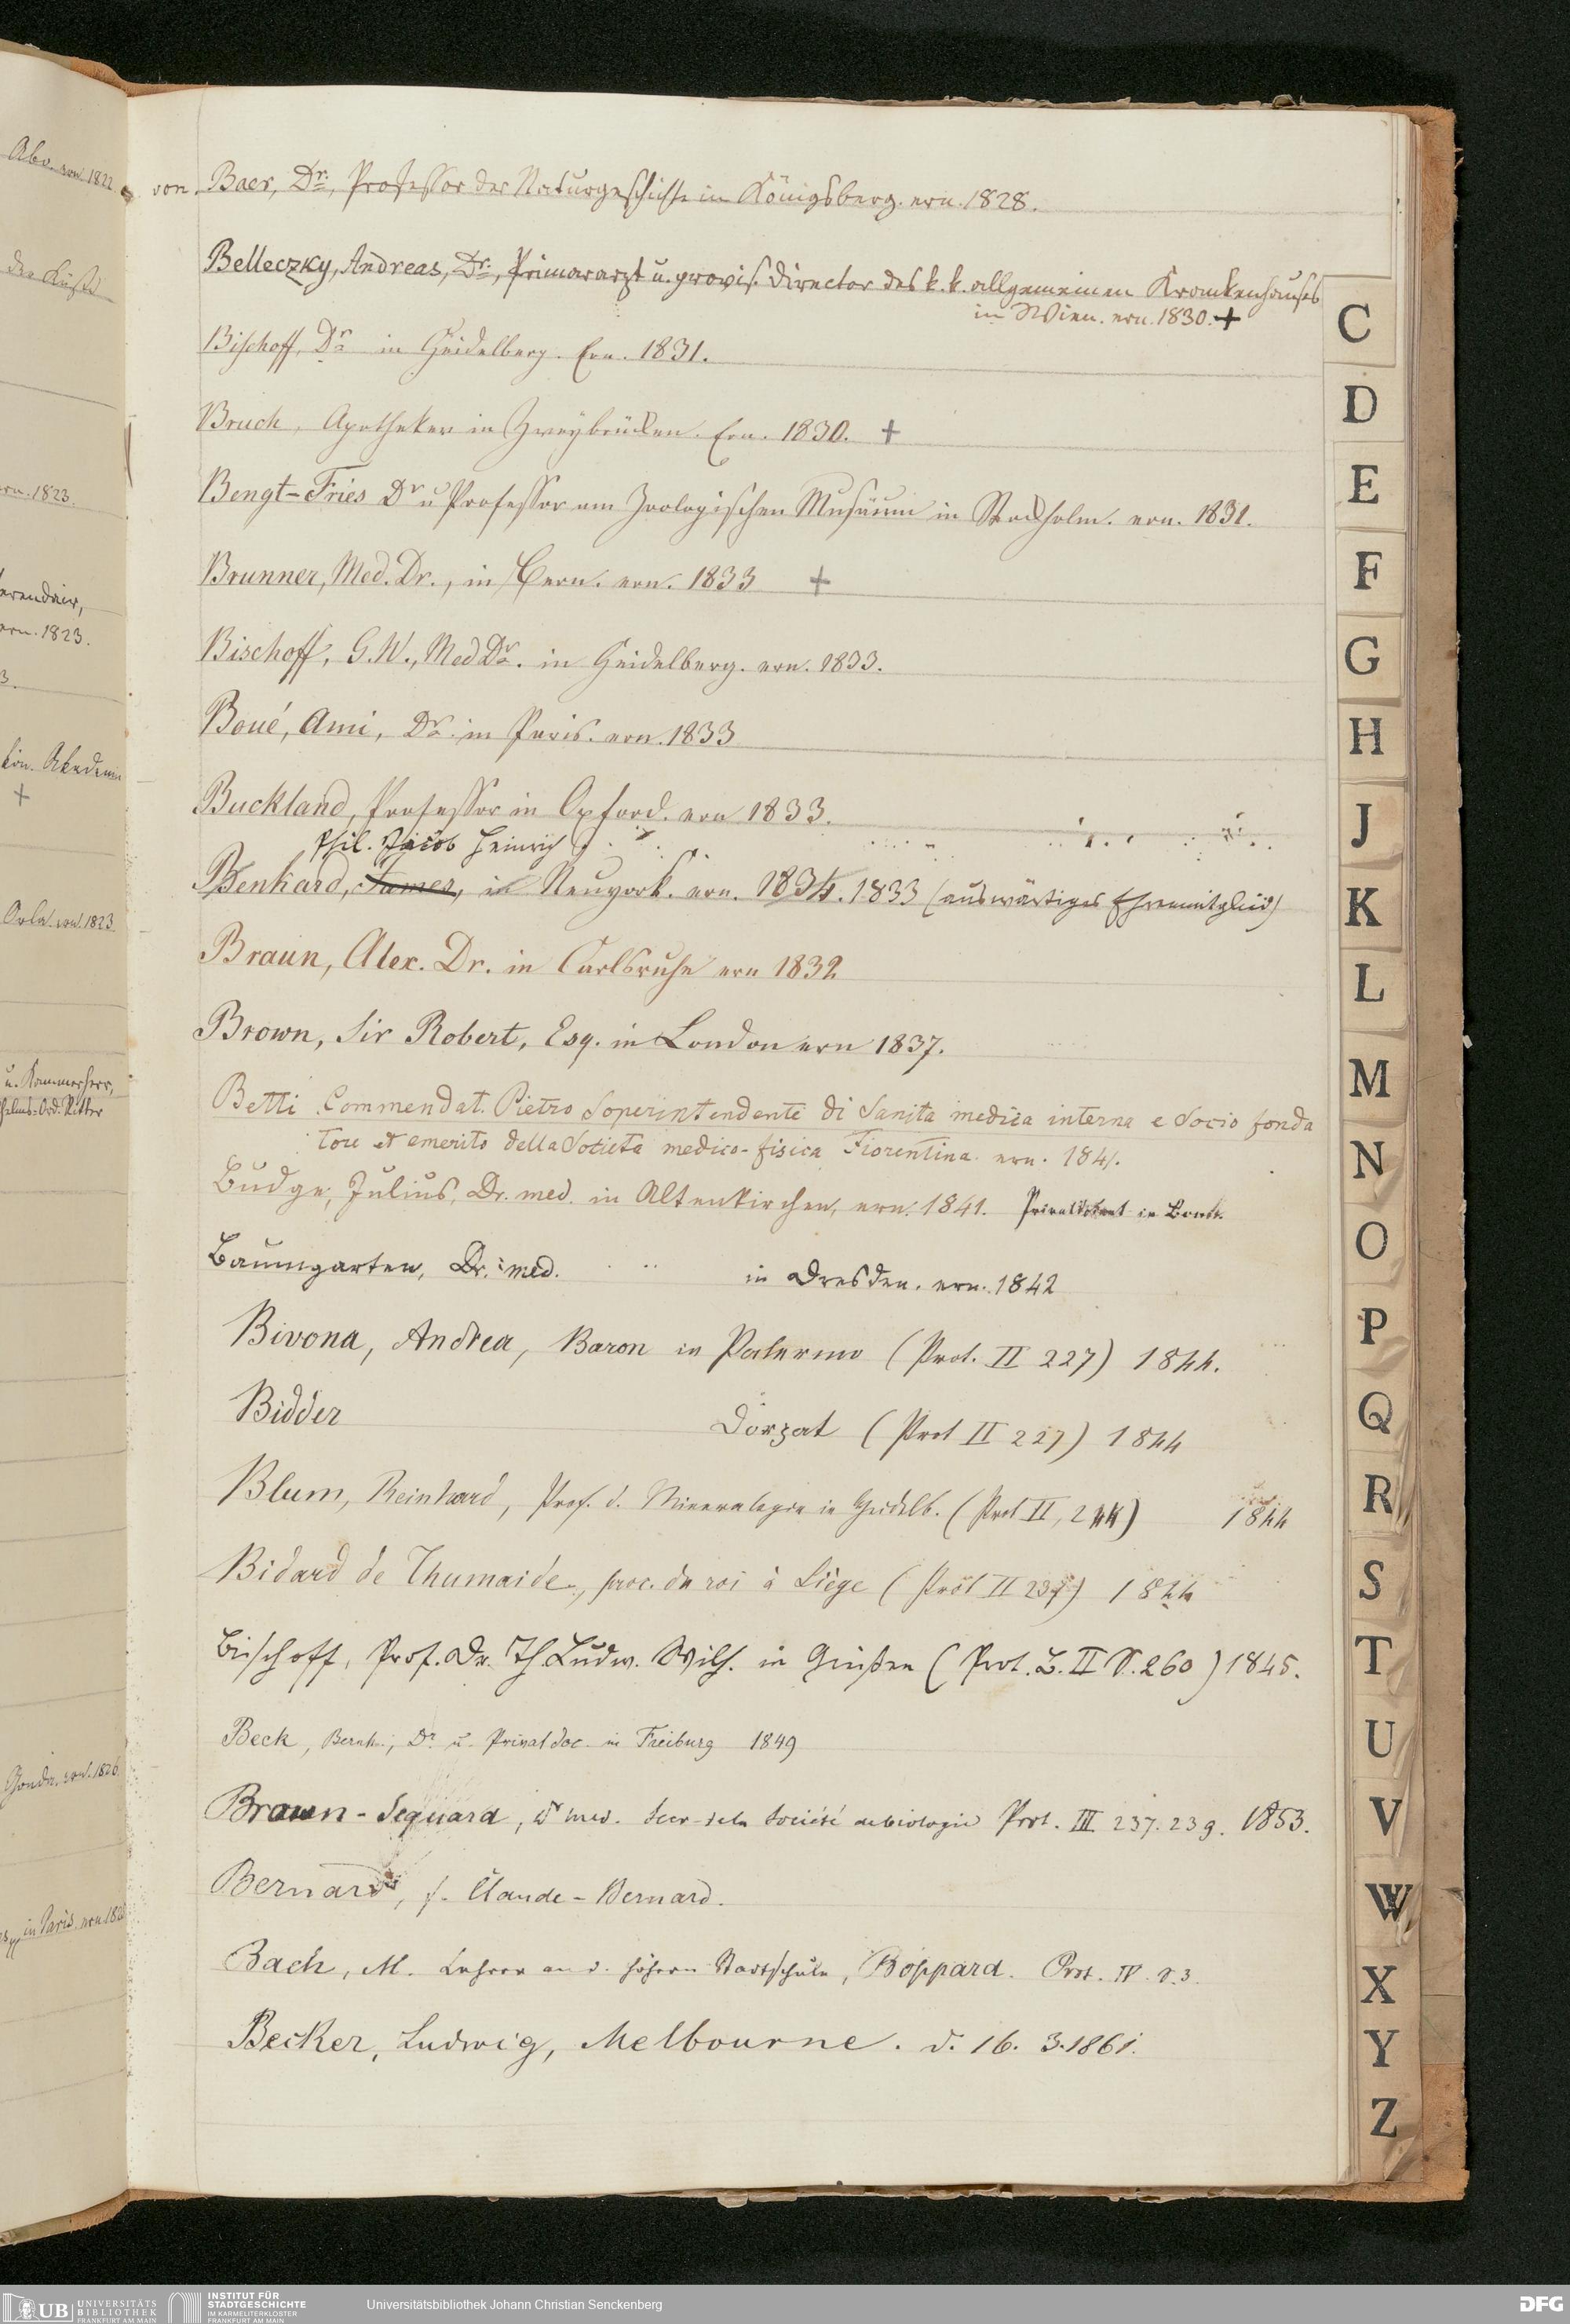 Abo. ern 1822
der Küste
ern. 1823.
erendair,
ern. 1823.
3.
kön. Akademie
+
Orla. ern. 1823
u. Kammerherr,
Ord. Ritter
Gouda. ern. 1826
in Paris. ern 182
von Baer, Dr., Professor der Naturgeschichte in Königsberg. ern. 1828.
Belleczky, Andreas, Dr., Primararzt u. provis. Director des k. k. allgemeinen Krankenhauses
in Wien. ern. 1830. +
Bischoff, Dr in Heidelberg. Ern. 1831.
Bruch, Apotheker in Zweybrücken. Ern. 1830. +
Bengt-Fries Dr u Professor am Zoologischen Musäum in Stockholm. ern. 1831.
Brunner, Med. Dr., in Bern. ern. 1833 +
Bischoff, G.W., Med Dr. in Heidelberg. ern. 1833.
Boué, Ami, Dr. in Paris. ern. 1833
Buckland, Professor in Oxford. ern 1833.
Phil. Jacob Heinrich
Benkard, James, in Neuyork. ern. 1834. 1833 (auswärtiges Ehrenmitglied)
Braun, Alex. Dr. in Carlsruhe ern 1832
Brown, Sir Robert, Esq. in London ern 1837.
Betti Commendat. Pietro Soperintendente di Sanita medica interna e Socio fonda
tore et emerito della Societa medico-fisica Fiorentina. ern. 1841.
Budge, Julius, Dr. med. in Altenkirchen, ern. 1841. Privatdocent in Bonn.
Baumgarten, Dr. med. in Dresden. ern. 1842
Bivona, Andrea, Baron in Palermo (Prot. II 227) 1844.
Bidder Dorpat (Prot II 227) 1844
Blum, Reinhard, Prof. d. Mineralogie in Heidelb. (Prot II, 244) 1844
Bidard de Thumaide, proc. du roi à Liége (Prot II 237) 1844
Bischoff, Prof. Dr. Th. Ludw. Wilh. in Gießen (Prot. L. II S. 260) 1845.
Beck, Bernh., Dr. u. Privatdoc. in Freiburg 1849
Brown-Sequard, Dr med. Secr. de la Société de biologie Prot. III 237. 239. 1853.
Bernard, s. Claude-Bernard.
Bach, M. Lehrer an d. höhern Stadtschule, Boppard. Prot. IV. S. 3.
Becker, Ludwig, Melbourne. d. 16. 3. 1861.
C
D
E
F
G
H
J
K
L
M
N
O
P
Q
R
S
T
U
V
W
X
Y
Z
UB UNIVERSITÄTS
BIBLIOTHEK
FRANKFURT AM MAIN
INSTITUT FÜR
STADTGESCHICHTE
IM KARMELITERKLOSTER
FRANKFURT AM MAIN
Universitätsbibliothek Johann Christian Senckenberg
DFG